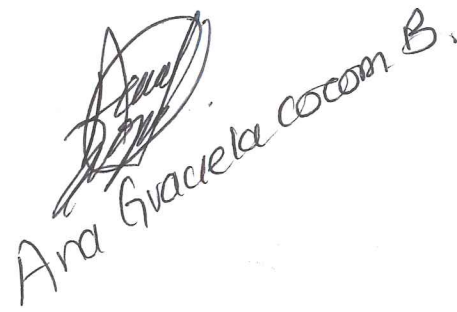 Ana Graciela Cocom B.